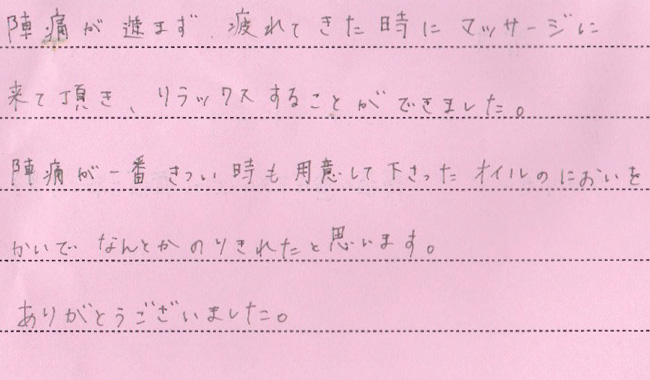 陣痛が進まず、疲れてきた時にマッサージに
来て頂き、リラックスすることができました。
陣痛が一番きつい時も用意して下さった オイルのにおいを
かいで なんとかのりきれたと思います。
ありがとうございました。